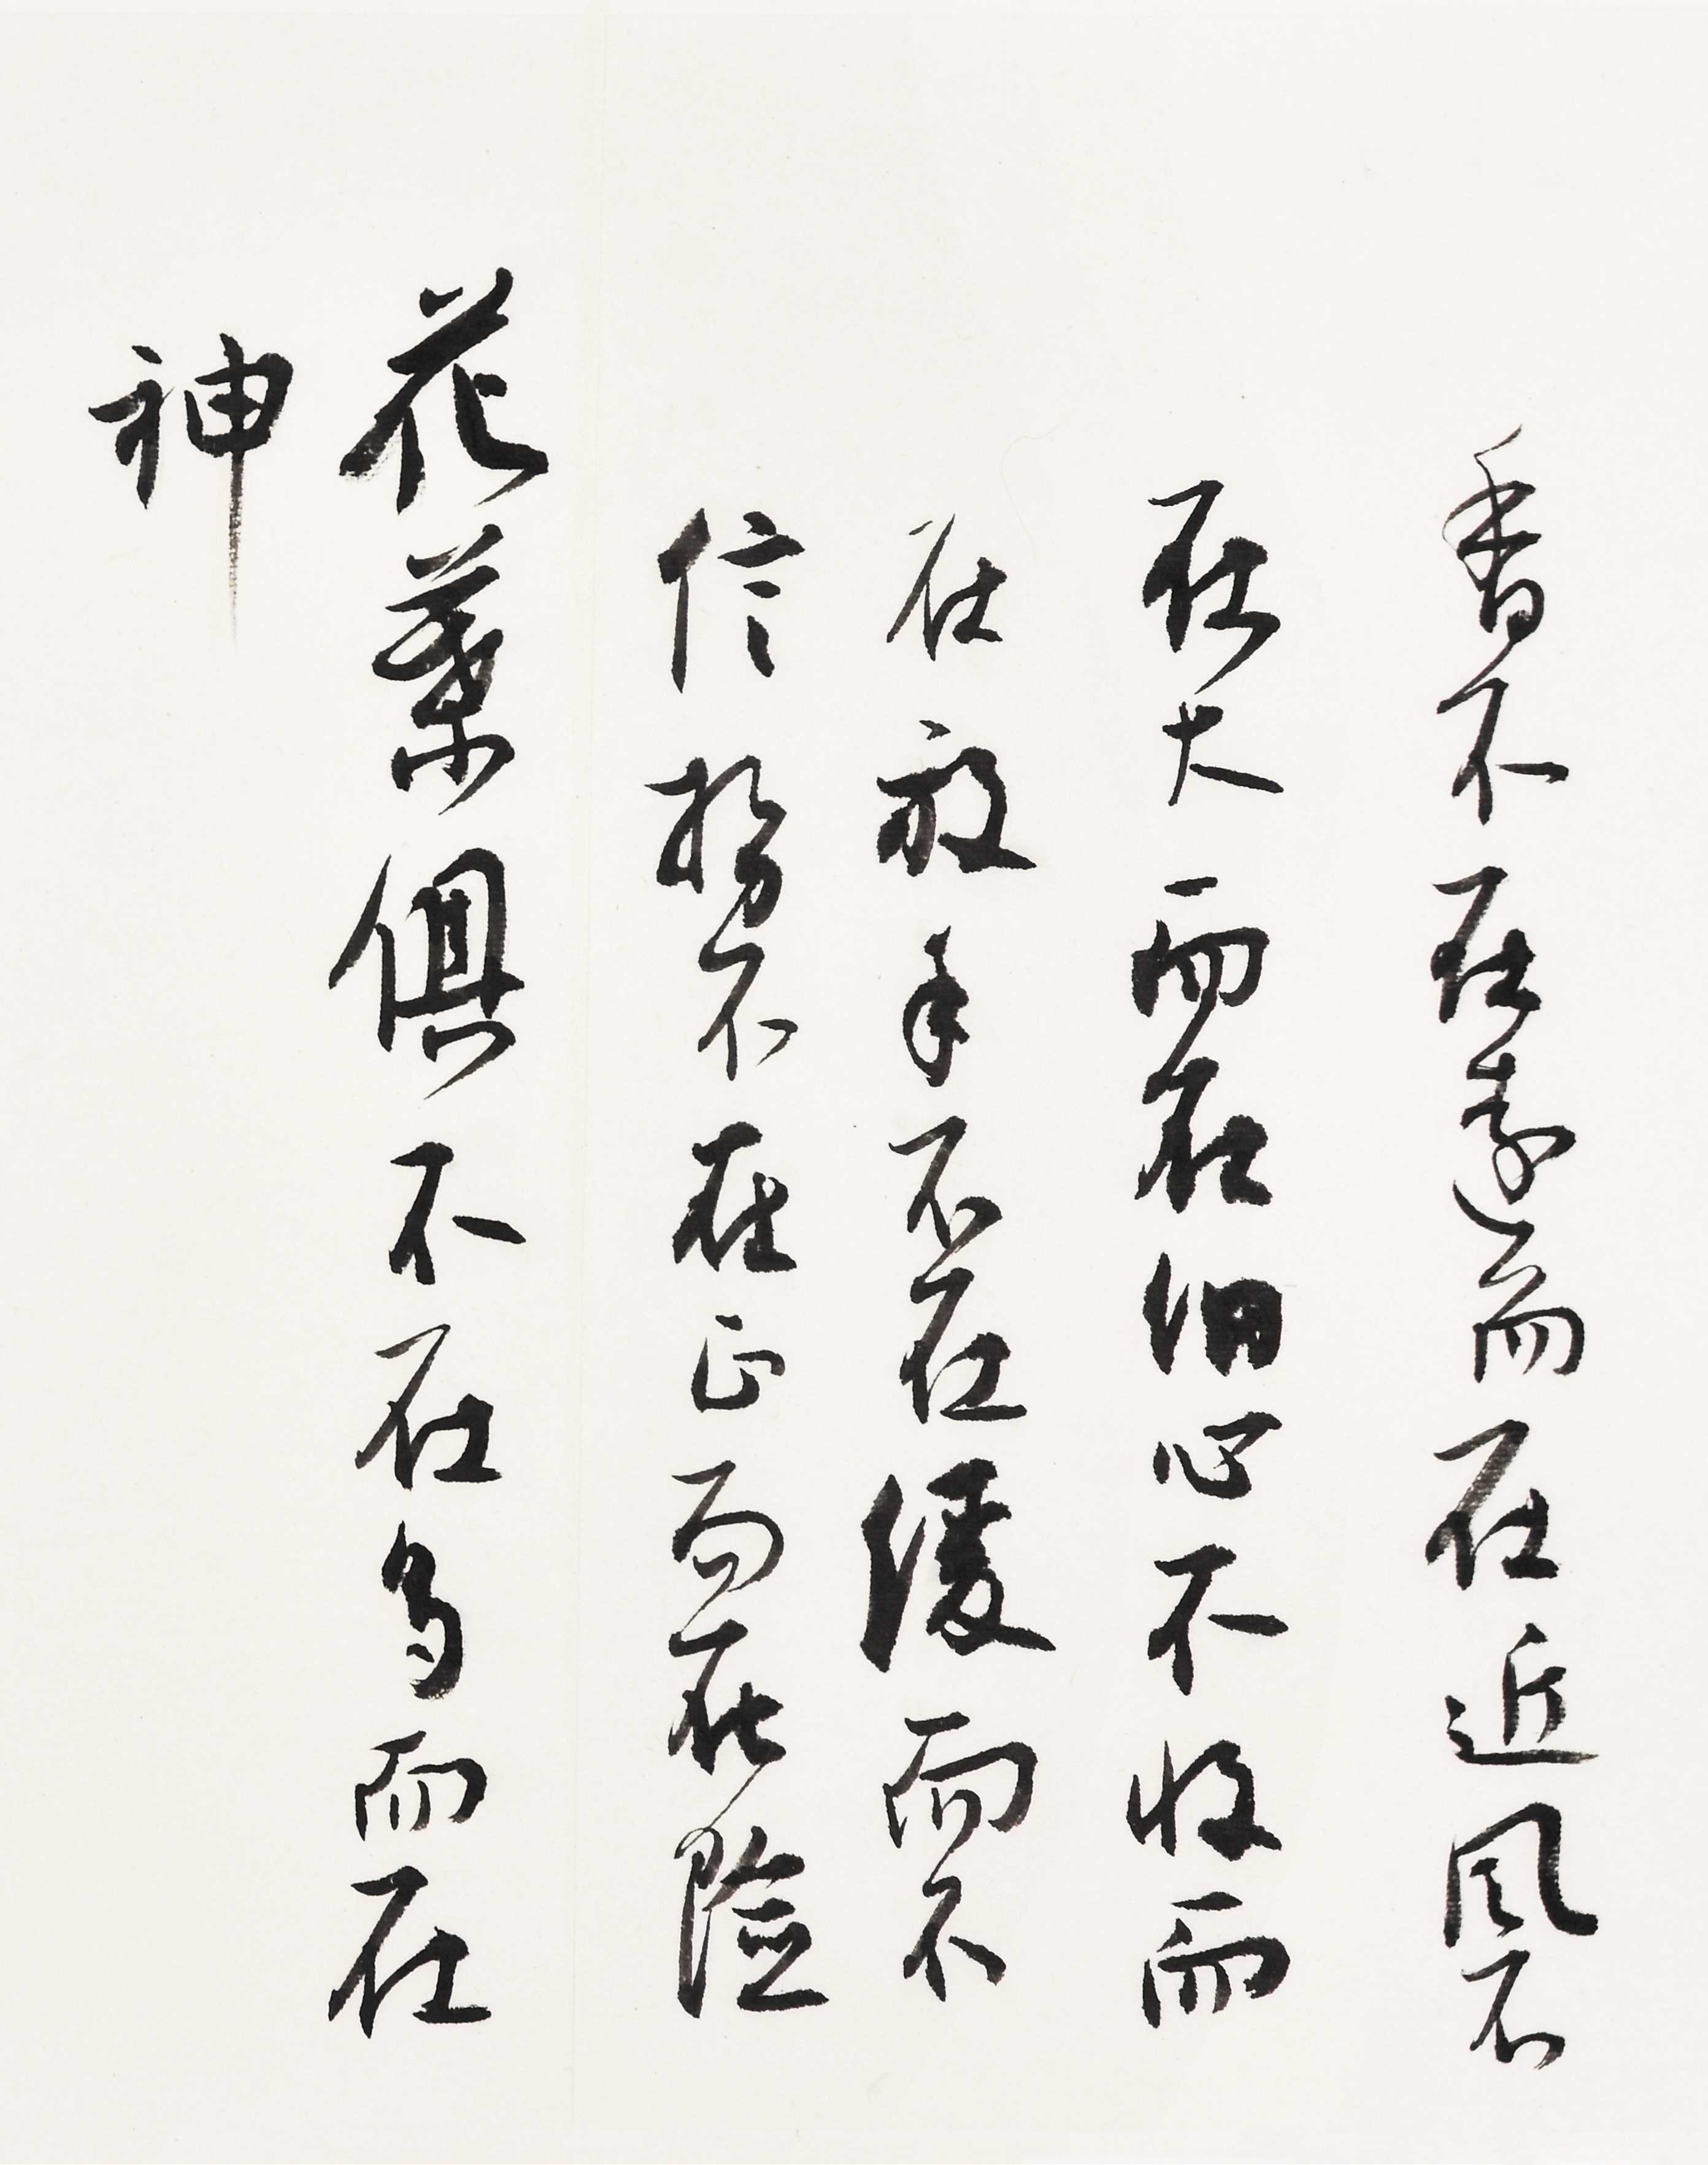 香不在遠而在近風不
在大而在細心不收而
在放手不在緩而不
信勢不在正而在險
花葉俱不在多而在
神